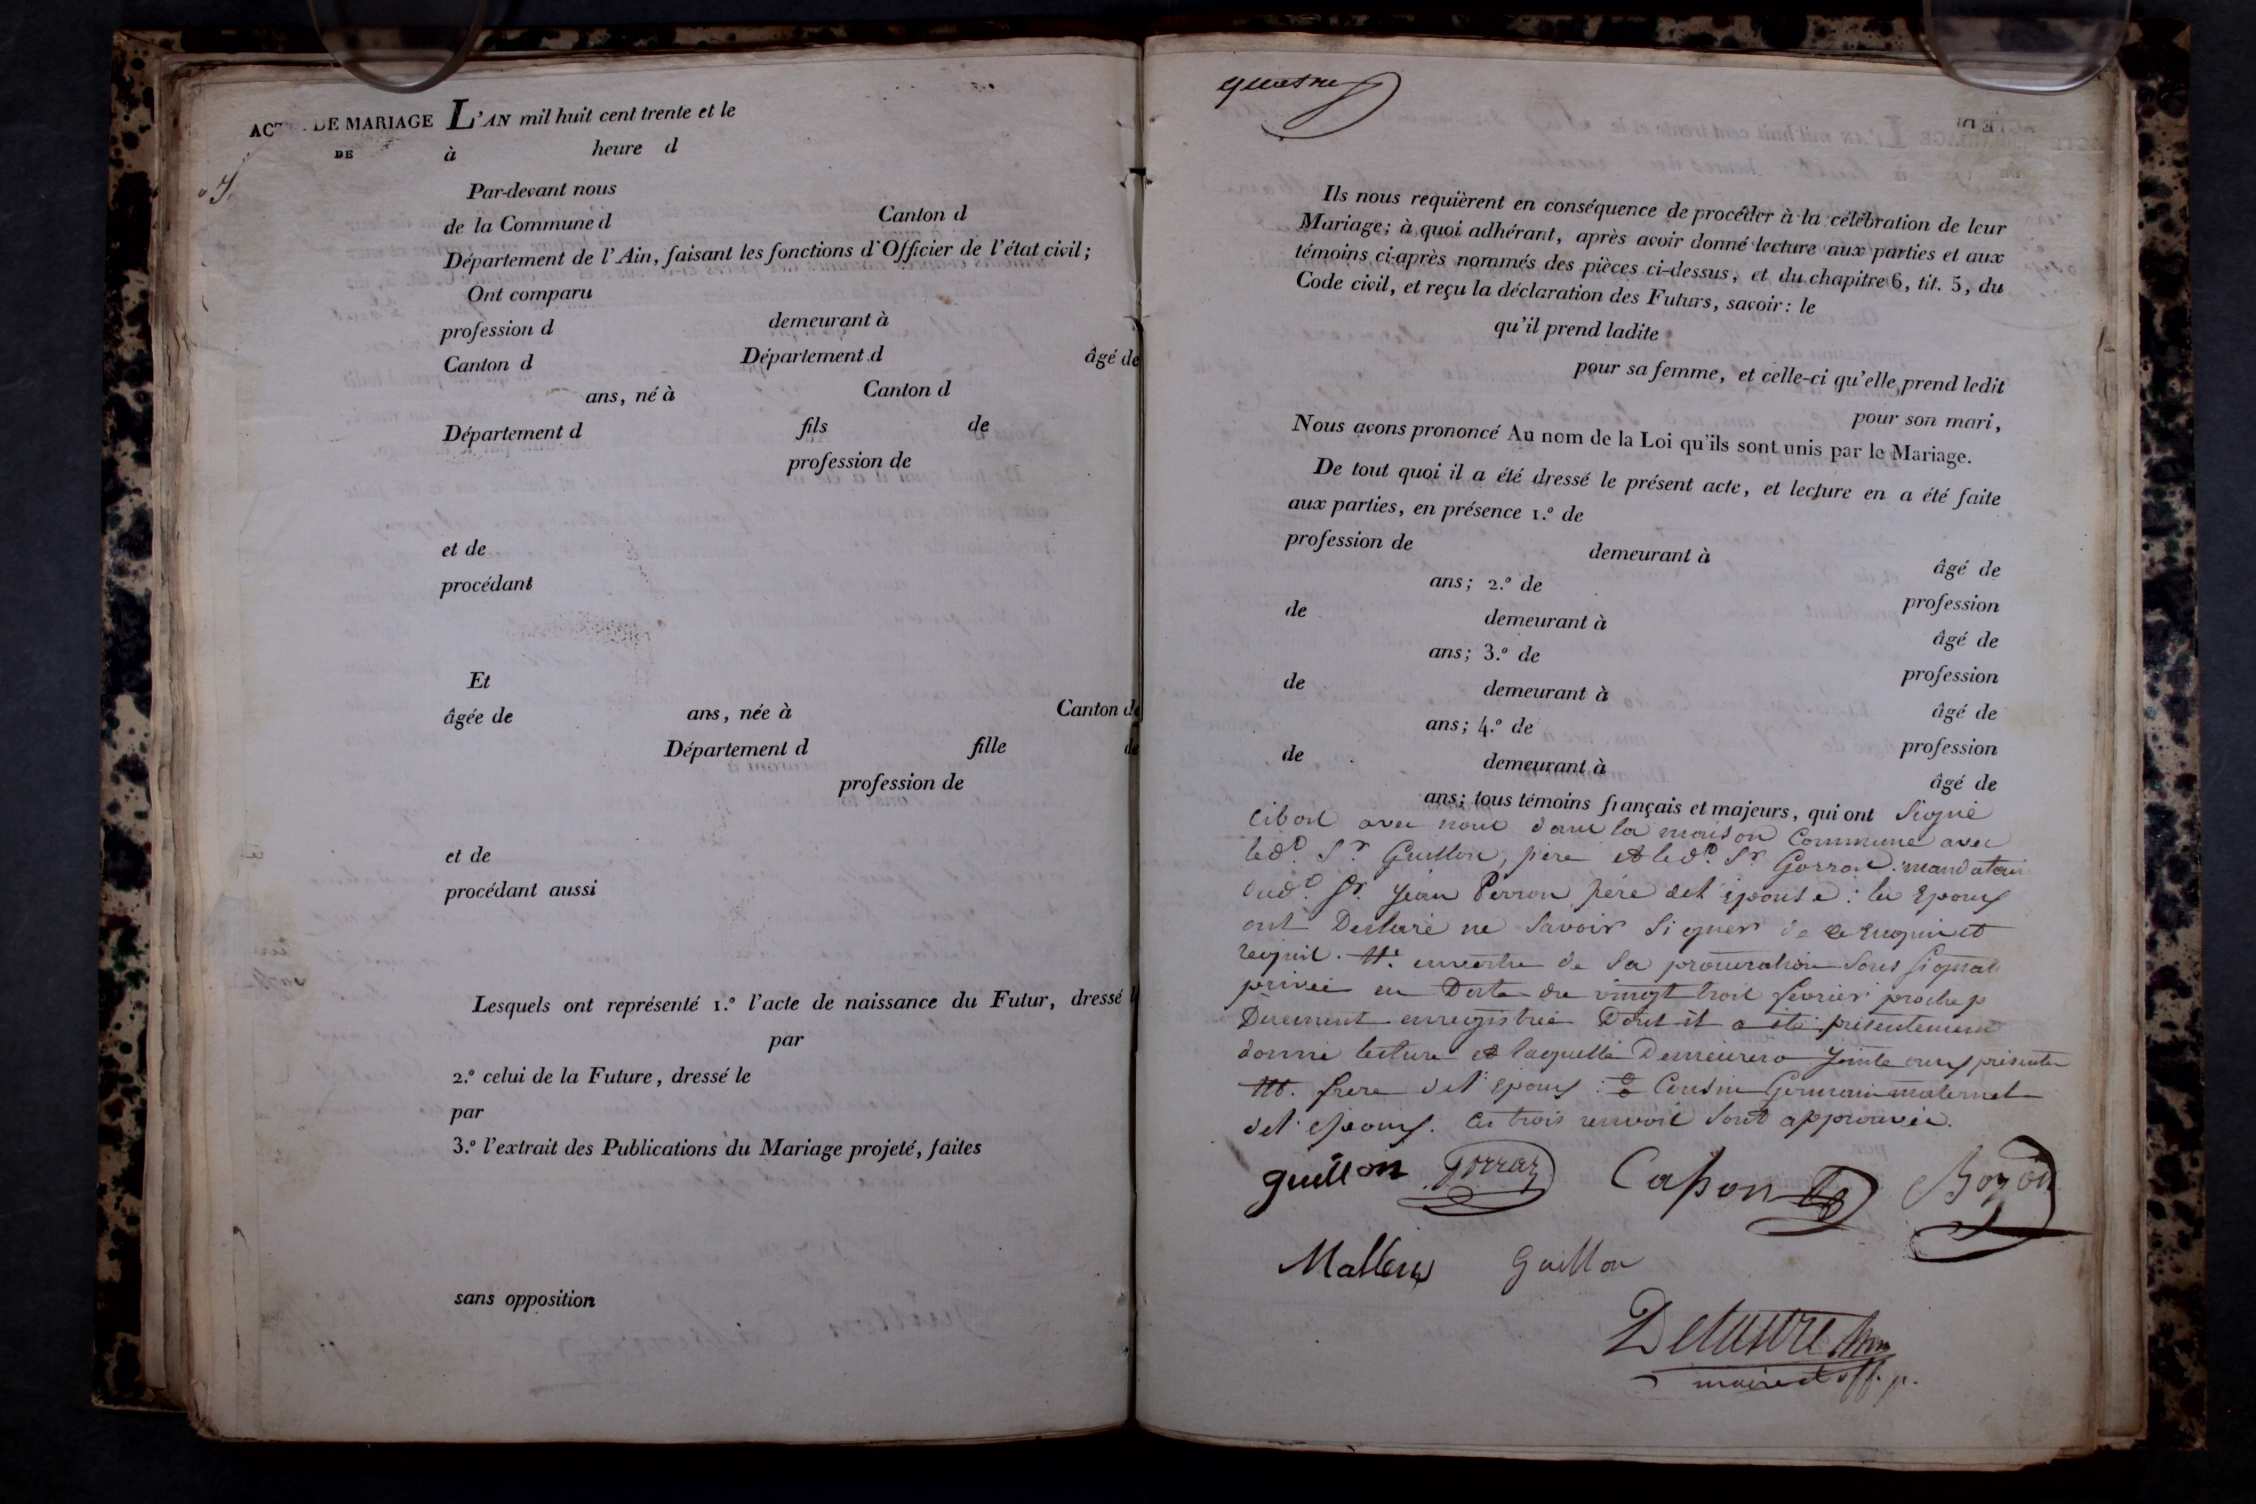 ACTE DE MARIAGE L'AN mil huit cent trente et le
DE à heure d
Par-devant nous
de la Commune d Canton d
Département de l'Ain, faisant les fonctions d'Officier de l'état civil;
Ont comparu
profession d demeurant à
Canton d Département d âgé de
ans, né à Canton d
Département d fils de
profession de
et de
procédant
Et
âgée de ans, née à Canton de
Département d fille de
profession de
et de
procédant aussi
Lesquels ont représenté 1.º l'acte de naissance du Futur, dressé l
par
2.º celui de la Future, dressé le
par
3.º l'extrait des Publications du Mariage projeté, faites
sans opposition
quatre
Ils nous requièrent en conséquence de procéder à la célébration de leur
Mariage; à quoi adhérant, après avoir donné lecture aux parties et aux
témoins ci-après nommés des pièces ci-dessus, et du chapitre 6, tit. 5, du
Code civil, et reçu la déclaration des Futurs, savoir: le
qu'il prend ladite
pour sa femme, et celle-ci qu'elle prend ledit
pour son mari,
Nous avons prononcé Au nom de la Loi qu'ils sont unis par le Mariage.
De tout quoi il a été dressé le présent acte, et lecture en a été faite
aux parties, en présence 1.º de
profession de demeurant à âgé de
ans; 2.º de profession
de demeurant à âgé de
ans; 3.º de profession
de demeurant à âgé de
ans; 4.º de profession
de demeurant à âgé de
ans; tous témoins français et majeurs, qui ont signé
avec nous dans la maison Commune avec
led.t S.r Guillon, père et led.t S.r Gorraz mandataire
dud.t Sr. Jean Perron père de l'épouse: les Epoux
ont Déclaré ne savoir signer de ce enquis et
requis. en vertu de sa procuration sous signat
privée en Date du vingt trois février proche p
Duement enregistrée Dont il a été présentement
donné lecture et laquelle Demeurera jointe aux présentes
frère de l'époux: Cousin Germain maternel
de l'époux. Ces trois renvois sont approuvés.
guillon Gorraz Capon Bozon
Mallen Guillon
Delastre
maire et off. p.